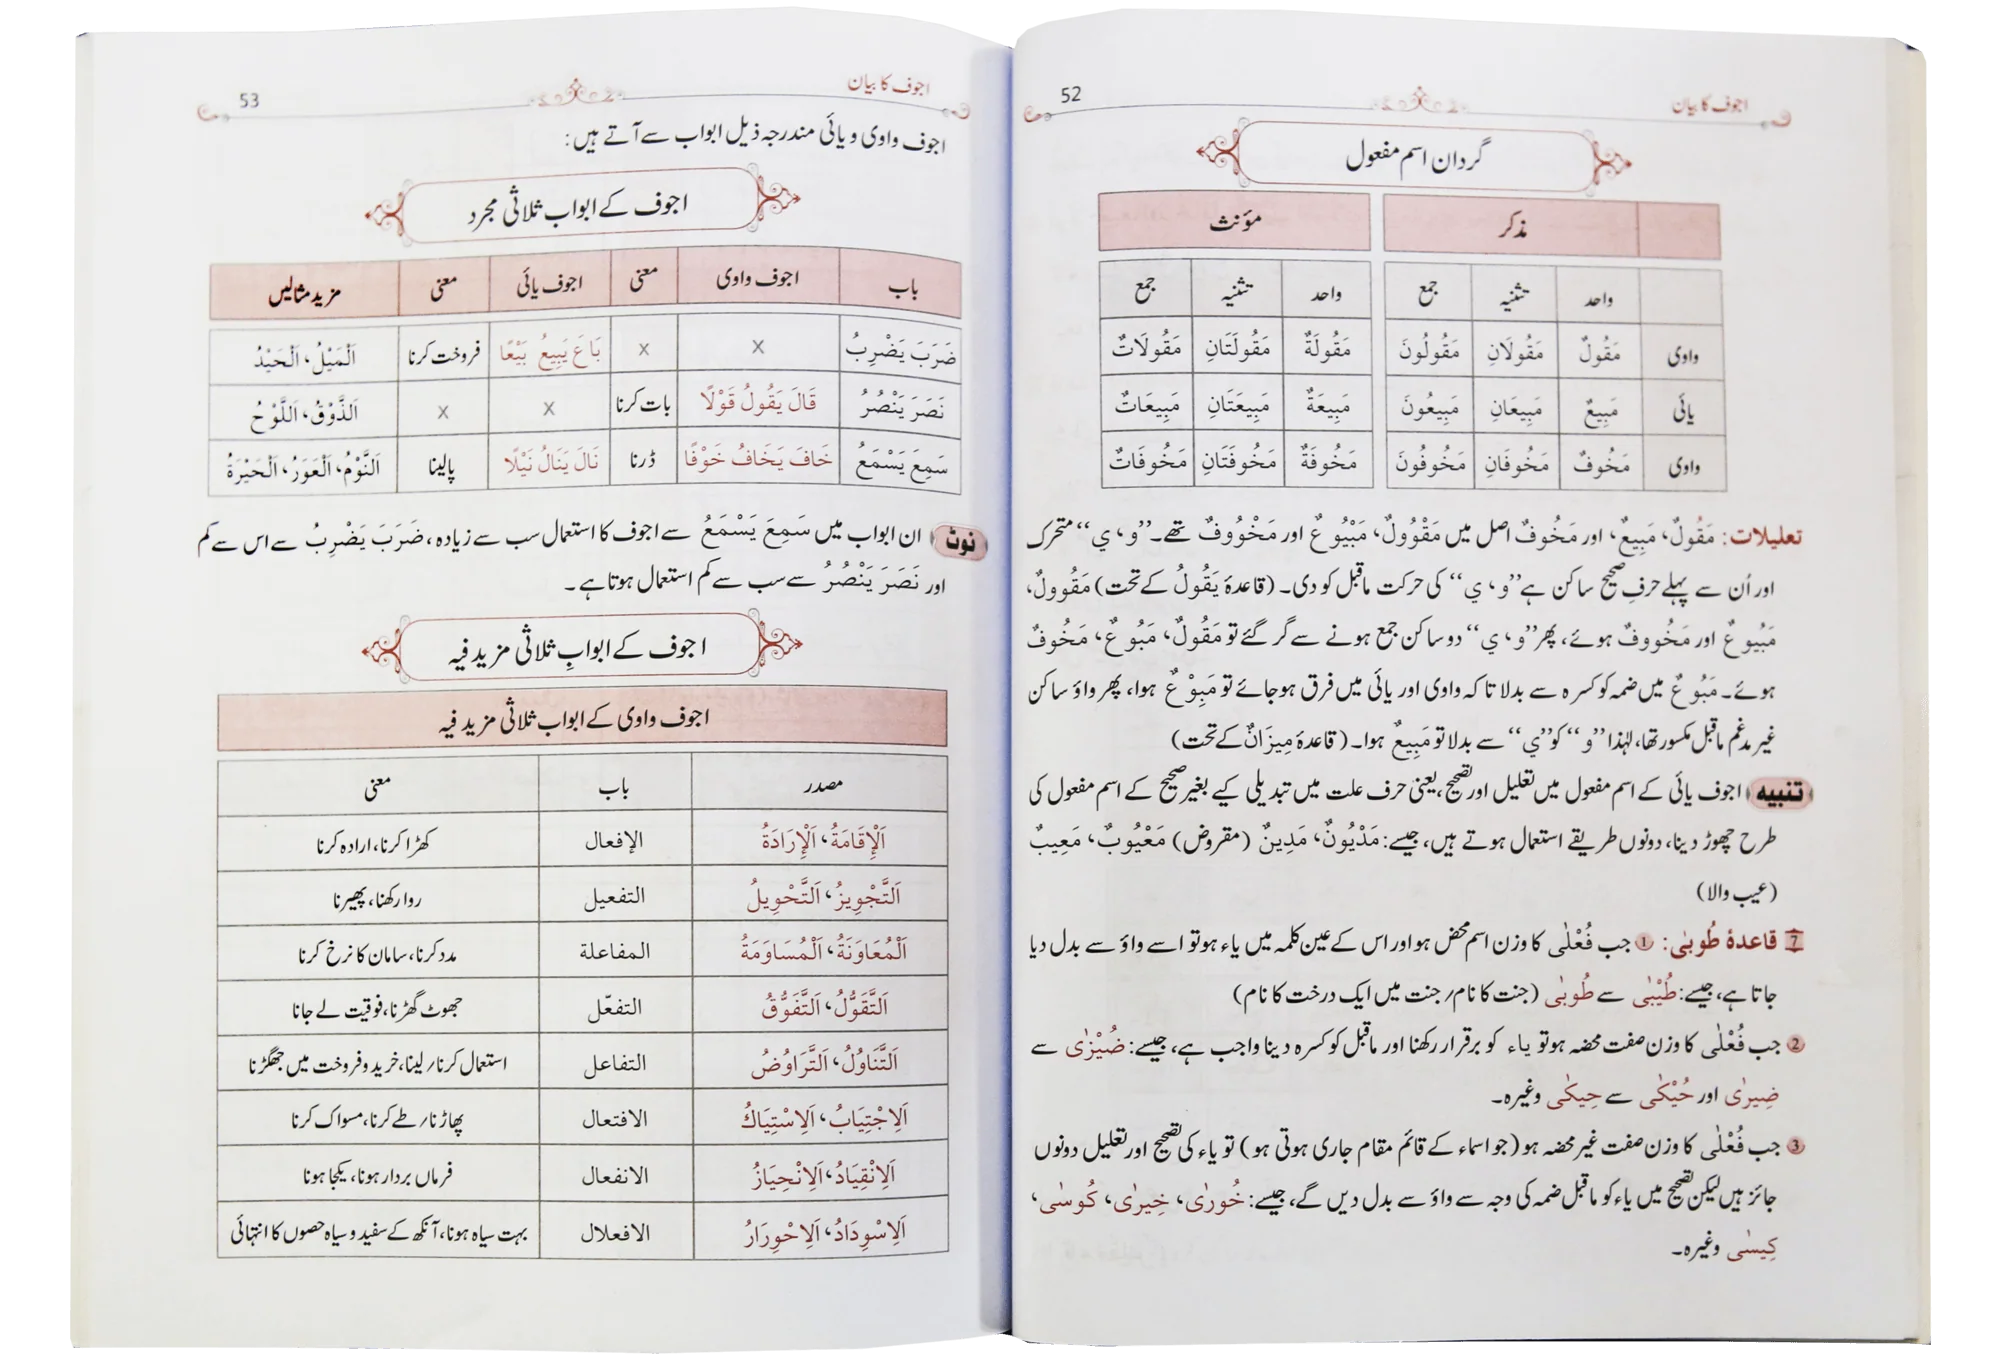 اجوف کا بیان 52
گردان اسم مفعول
مذکر مؤنث
واحد تثنیہ جمع واحد تثنیہ جمع
واوی مَقُولٌ مَقُولَانِ مَقُولُونَ مَقُولَةٌ مَقُولَتَانِ مَقُولَاتٌ
یائی مَبِيعٌ مَبِيعَانِ مَبِيعُونَ مَبِيعَةٌ مَبِيعَتَانِ مَبِيعَاتٌ
واوی مَخُوفٌ مَخُوفَانِ مَخُوفُونَ مَخُوفَةٌ مَخُوفَتَانِ مَخُوفَاتٌ
تعلیلات: مَقُولٌ، مَبِيعٌ، اور مَخُوفٌ اصل میں مَقْوُولٌ، مَبْيُوعٌ اور مَخْوُوفٌ تھے۔ ’’و، ي‘‘ متحرک
اور اُن سے پہلے حرفِ صحیح ساکن ہے ’’و، ي‘‘ کی حرکت ماقبل کو دی۔ (قاعدۂ يَقُولُ کے تحت) مَقُوولٌ،
مَبُيوعٌ اور مَخُووفٌ ہوئے، پھر ’’و، ي‘‘ دو ساکن جمع ہونے سے گر گئے تو مَقُولٌ، مَبُوعٌ، مَخُوفٌ
ہوئے۔ مَبُوعٌ میں ضمہ کو کسرہ سے بدلا تاکہ واوی اور یائی میں فرق ہو جائے تو مَبِوْعٌ ہوا، پھر واؤ ساکن
غیر مدغم ماقبل مکسور تھا، لہٰذا ’’و‘‘ کو ’’ي‘‘ سے بدلا تو مَبِيعٌ ہوا۔ (قاعدۂ مِيزَانٌ کے تحت)
تنبیہ اجوف یائی کے اسم مفعول میں تعلیل اور تصحیح، یعنی حرف علت میں تبدیلی کیے بغیر صحیح کے اسم مفعول کی
طرح چھوڑ دینا، دونوں طریقے استعمال ہوتے ہیں، جیسے: مَدْيُونٌ، مَدِينٌ (مقروض) مَعْيُوبٌ، مَعِيبٌ
(عیب والا)
7 قاعدۂ طُوبٰى: 1 جب فُعْلٰى کا وزن اسم محض ہو اور اس کے عین کلمہ میں یاء ہو تو اسے واؤ سے بدل دیا
جاتا ہے، جیسے: طُيْبٰى سے طُوبٰى (جنت کا نام؍ جنت میں ایک درخت کا نام)
2 جب فُعْلٰى کا وزن صفت محضہ ہو تو یاء کو برقرار رکھنا اور ماقبل کو کسرہ دینا واجب ہے، جیسے: ضُيْزٰى سے
ضِيزٰى اور حُيْكٰى سے حِيكٰى وغیرہ۔
3 جب فُعْلٰى کا وزن صفت غیر محضہ ہو (جو اسماء کے قائم مقام جاری ہوتی ہو) تو یاء کی تصحیح اور تعلیل دونوں
جائز ہیں لیکن تصحیح میں یاء کو ماقبل ضمہ کی وجہ سے واؤ سے بدل دیں گے، جیسے: خُورٰى، خِيرٰى، كُوسٰى،
كِيسٰى وغیرہ۔
اجوف کا بیان 53
اجوف واوی و یائی مندرجہ ذیل ابواب سے آتے ہیں:
اجوف کے ابواب ثلاثی مجرد
باب اجوف واوی معنی اجوف یائی معنی مزید مثالیں
ضَرَبَ يَضْرِبُ x x بَاعَ يَبِيعُ بَيْعًا فروخت کرنا اَلْمَيْلُ، اَلْحَيْدُ
نَصَرَ يَنْصُرُ قَالَ يَقُولُ قَوْلًا بات کرنا x x اَلذَّوْقُ، اَللَّوْحُ
سَمِعَ يَسْمَعُ خَافَ يَخَافُ خَوْفًا ڈرنا نَالَ يَنَالُ نَيْلًا پالینا اَلنَّوْمُ، اَلْعَوَرُ، اَلْحَيْرَةُ
نوٹ ان ابواب میں سَمِعَ يَسْمَعُ سے اجوف کا استعمال سب سے زیادہ، ضَرَبَ يَضْرِبُ سے اس سے کم
اور نَصَرَ يَنْصُرُ سے سب سے کم استعمال ہوتا ہے۔
اجوف کے ابوابِ ثلاثی مزید فیہ
اجوف واوی کے ابواب ثلاثی مزید فیہ
مصدر باب معنی
اَلْإِقَامَةُ، اَلْإِرَادَةُ الإفعال کھڑا کرنا، ارادہ کرنا
اَلتَّجْوِيزُ، اَلتَّحْوِيلُ التفعيل روا رکھنا، پھیرنا
اَلْمُعَاوَنَةُ، اَلْمُسَاوَمَةُ المفاعلة مدد کرنا، سامان کا نرخ کرنا
اَلتَّقَوُّلُ، اَلتَّفَوُّقُ التفعّل جھوٹ گھڑنا، فوقیت لے جانا
اَلتَّنَاوُلُ، اَلتَّرَاوُضُ التفاعل استعمال کرنا؍ لینا، خرید و فروخت میں جھگڑنا
اَلِاجْتِيَابُ، اَلِاسْتِيَاكُ الافتعال پھاڑنا؍ طے کرنا، مسواک کرنا
اَلِانْقِيَادُ، اَلِانْحِيَازُ الانفعال فرماں بردار ہونا، یکجا ہونا
اَلِاسْوِدَادُ، اَلِاحْوِرَارُ الافعلال بہت سیاہ ہونا، آنکھ کے سفید و سیاہ حصوں کا انتہائی